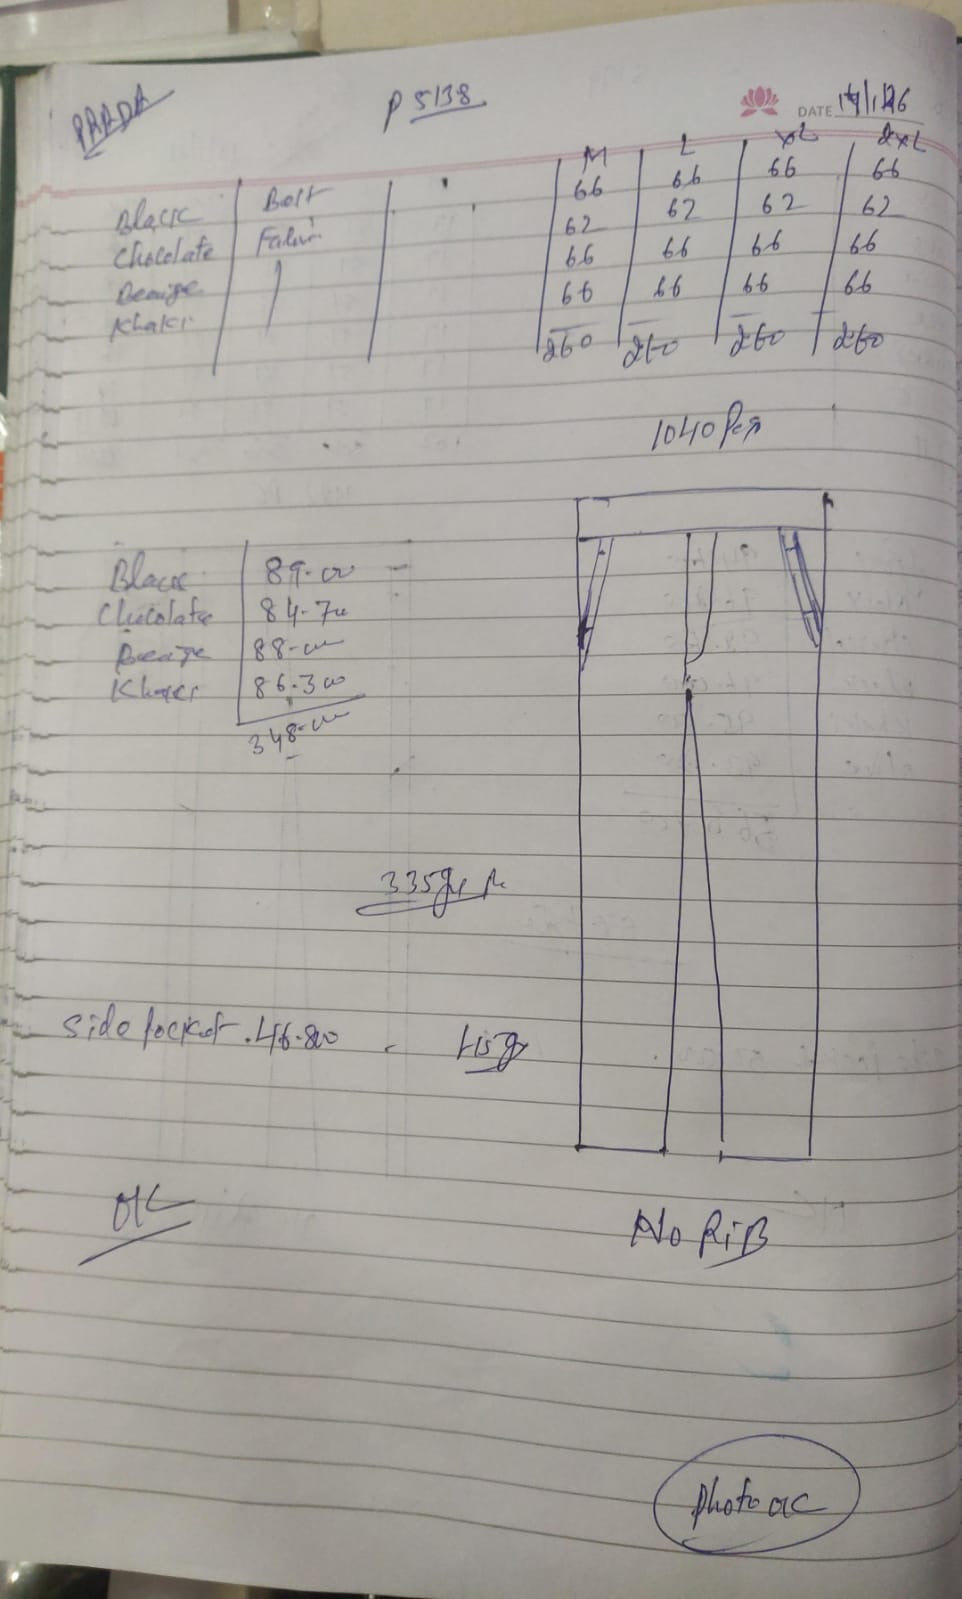 PRADA P 5138 DATE
M L XL 2XL
Black 66 66 66 66
Chocolate 62 62 62 62
Beaige 66 66 66 66
Khaki 66 66 66 66
260 260 260 260
1040 Pcs
Black 89.00
Chocolate 84.700
Beaige 88.00
Khaki 86.300
348.00
335gr
side pocket .46.800 45gr
OK
No RiB
Photo OK